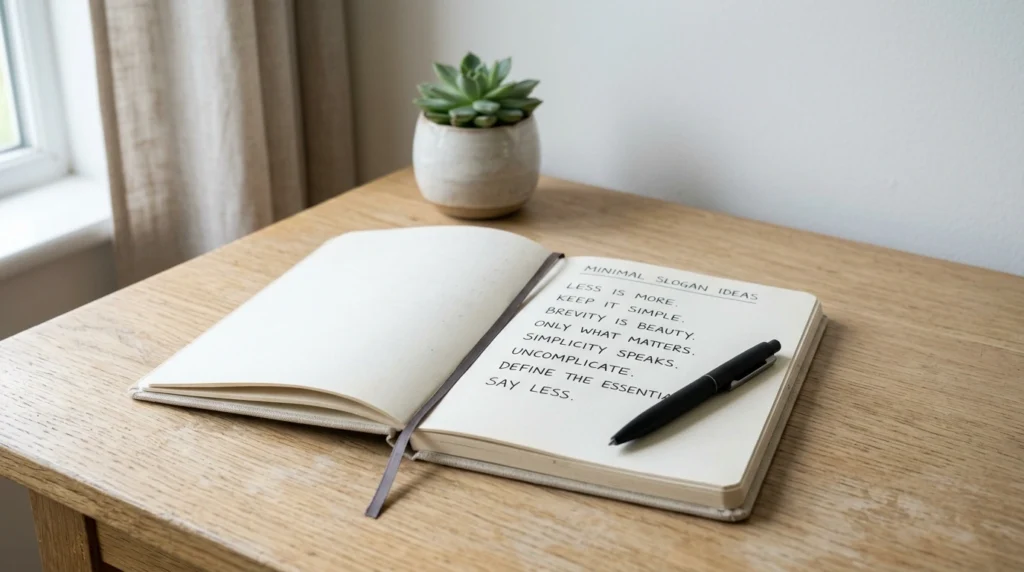 MINIMAL SLOGAN IDEAS
LESS IS MORE.
KEEP IT SIMPLE.
BREVITY IS BEAUTY.
ONLY WHAT MATTERS.
SIMPLICITY SPEAKS.
UNCOMPLICATE.
DEFINE THE
SAY LESS.